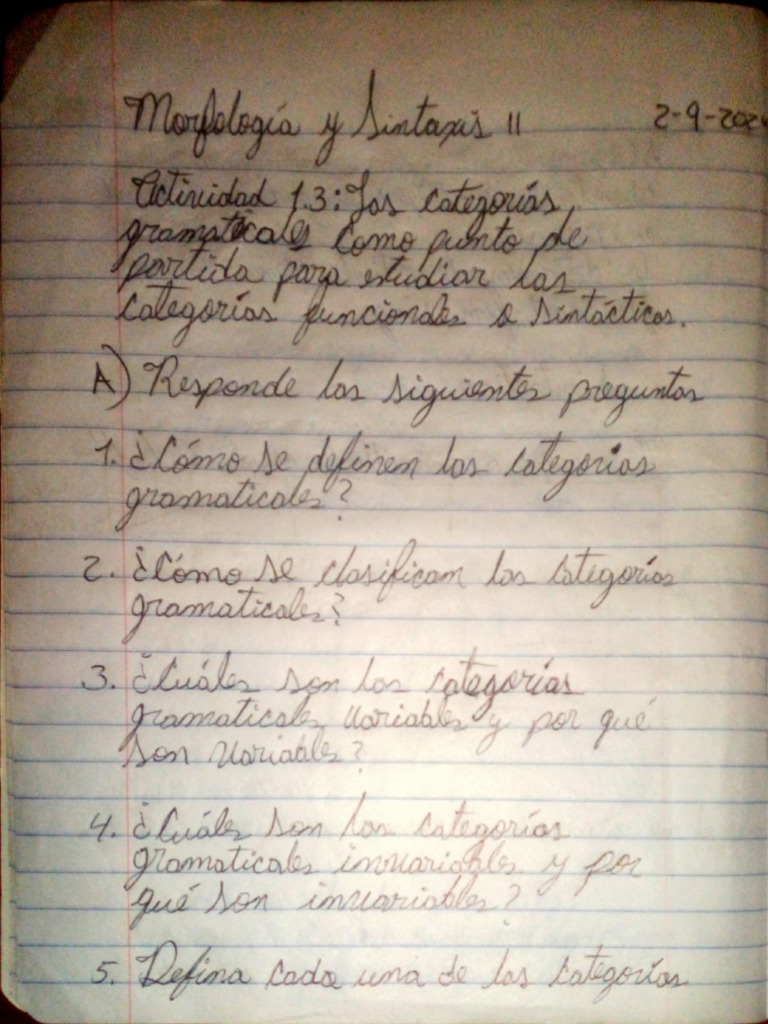 Morfología y Sintaxis II 2-9-202
Actividad 1.3: Las categorías
gramaticales como punto de
partida para estudiar las
categorías funcionales o sintácticas.
A) Responde las siguientes preguntas
1. ¿Cómo se definen las categorías
gramaticales?
2. ¿Cómo se clasifican las categorías
gramaticales?
3. ¿Cuáles son las categorías
gramaticales variables y por qué
son variables?
4. ¿Cuáles son las categorías
gramaticales invariables y por
qué son invariables?
5. Defina cada una de las categorías